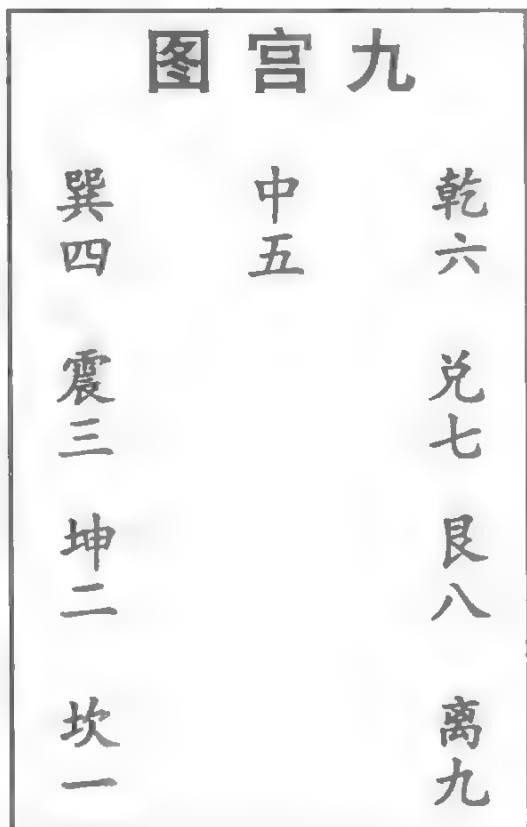 九宫图
乾六
兑七
艮八
离九
中五
巽四
震三
坤二
坎一